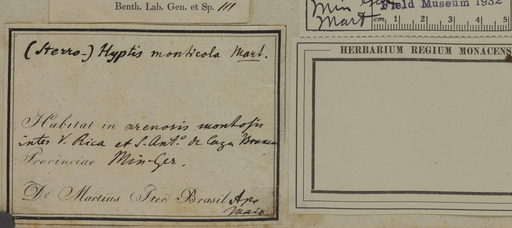 Benth. Lab. Gen. et Sp. 111
(Hierro.) Hyptis monticola Mart.
Habitat in arenosis montosis
inter V. Rica et S. Ant.º de Caza Branca
Provinciae Min. Ger.
Dr Martius Iter Brasil. Apr
Maio
Min
Mart
Field Museum 1932
cm 1 2 3 4 5
HERBARIUM REGIUM MONACENS